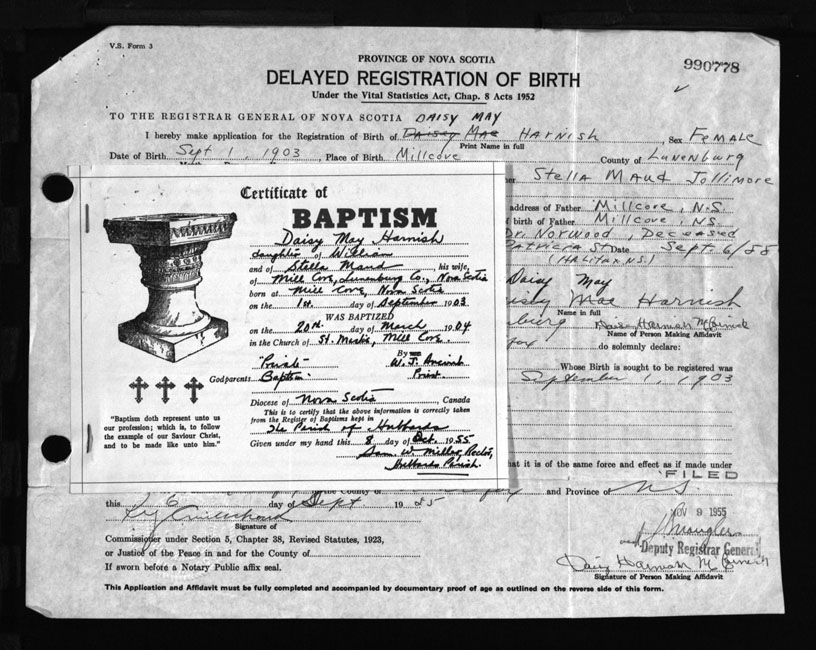 V.S. Form 3
PROVINCE OF NOVA SCOTIA
990778
DELAYED REGISTRATION OF BIRTH
Under the Vital Statistics Act, Chap. 8 Acts 1952
TO THE REGISTRAR GENERAL OF NOVA SCOTIA DAISY MAY
I hereby make application for the Registration of Birth of Daisey Mae HARNISH, Sex FEMALE
Print Name in full
Date of Birth Sept 1, 1903, Place of Birth Millcove County of Lunenburg
Stella Maud Jollimore
address of Father Millcove, N.S.
birth of Father Millcove, N.S.
Dr. Norwood, Deceased
Patricia St. Date Sept. 6/55
(HALIFAX N.S.)
Daisy May
Mae Harnish
Name in full
Name of Person Making Affidavit
do solemnly declare:
Whose Birth is sought to be registered was
September 1, 1903
that it is of the same force and effect as if made under
FILED
Certificate of
BAPTISM
Daisy May Harnish
daughter of William
and of Stella Maud, his wife,
of Mill Cove, Lunenburg Co., Nova Scotia
born at Mill Cove, Nova Scotia
on the 1st. day of September 1903
WAS BAPTIZED
on the 20th day of March 1904
in the Church of St. Mill Cove.
By
"Private W. J.
Godparents Baptism" Priest
Diocese of Nova Scotia, Canada
This is to certify that the above information is correctly taken
from the Register of Baptisms kept in
The Parish of Hubbards
Given under my hand this 8 day of Oct. 1955
Sam. W. Millar, Rector,
Hubbards Parish.
"Baptism doth represent unto us
our profession; which is, to follow
the example of our Saviour Christ,
and to be made like unto him."
in the County of and Province of N.S.
this 26 day of Sept. 1955
NOV 9 1955
Signature of
Commissioner under Section 5, Chapter 38, Revised Statutes, 1923,
or Justice of the Peace in and for the County of
Deputy Registrar General
If sworn before a Notary Public affix seal.
Daisy Harnish
Signature of Person Making Affidavit
This Application and Affidavit must be fully completed and accompanied by documentary proof of age as outlined on the reverse side of this form.